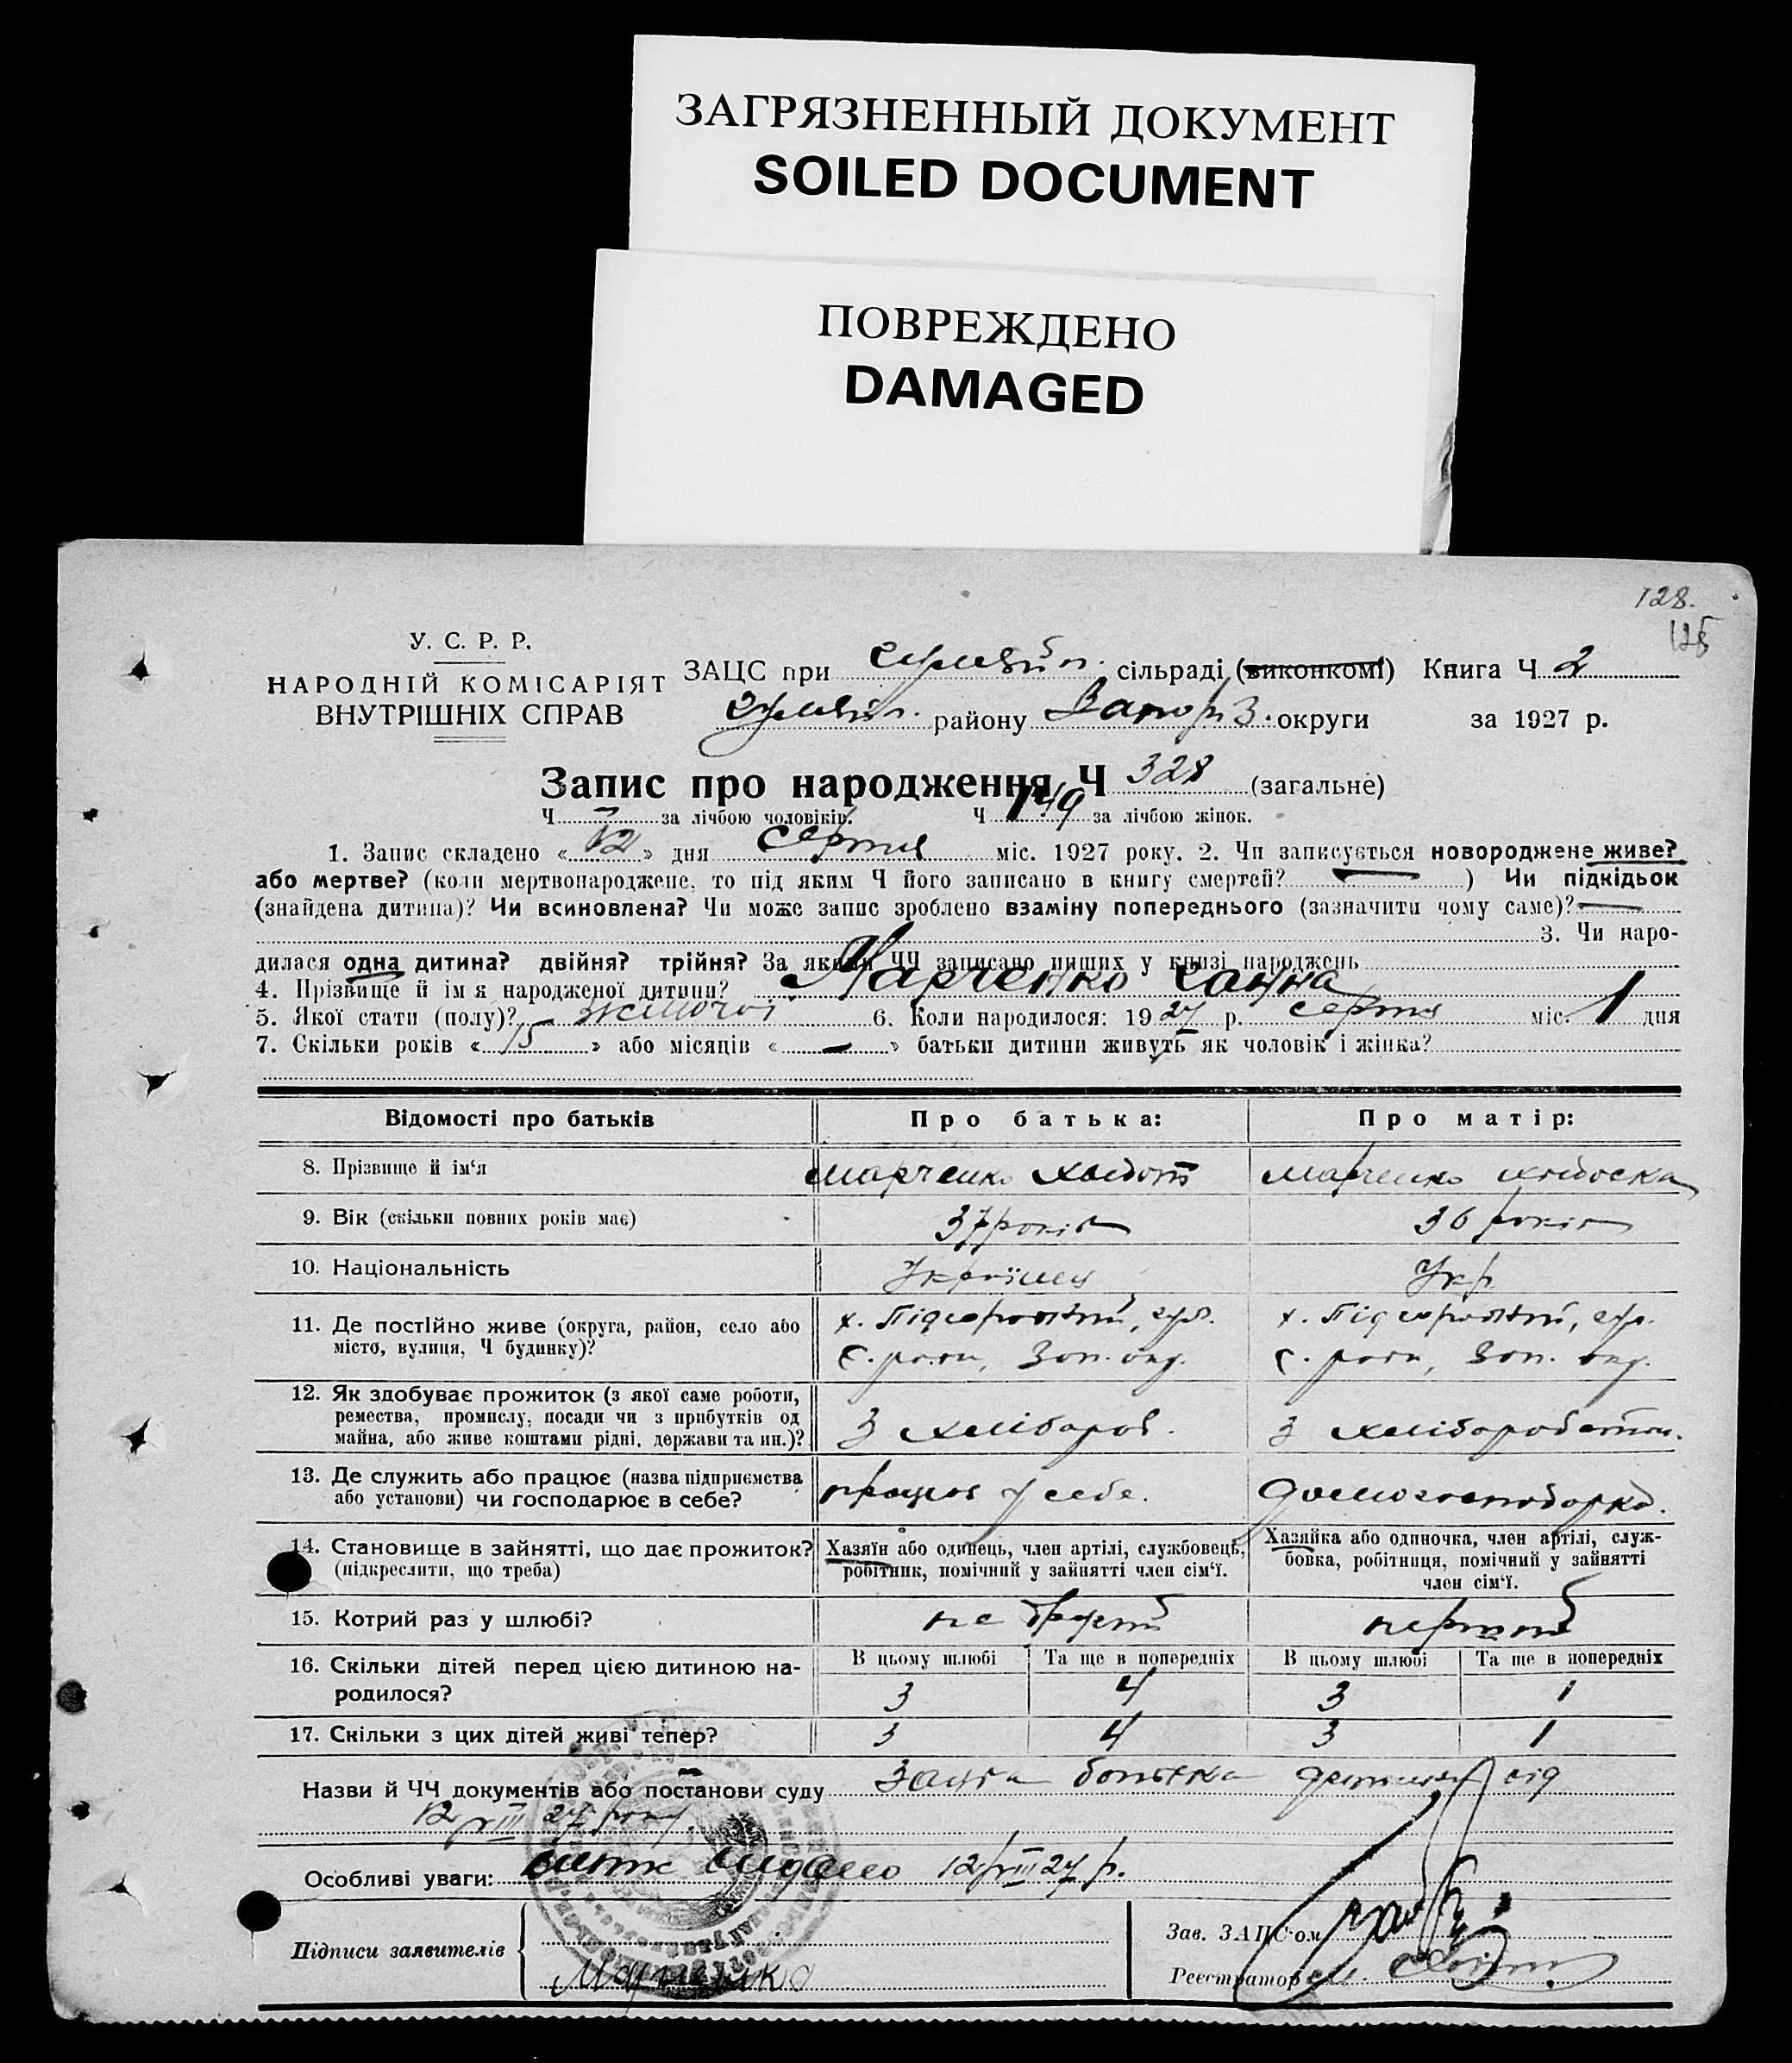 ЗАГРЯЗНЕННЫЙ ДОКУМЕНТ
SOILED DOCUMENT
ПОВРЕЖДЕНО
DAMAGED
128.
У. С. Р. Р.
НАРОДНІЙ КОМІСАРІЯТ
ВНУТРІШНІХ СПРАВ
ЗАЦС при сільраді (виконкомі) Книга Ч 2
району Запоріз. округи за 1927 р.
Запис про народження Ч 328 (загальне)
Ч — за лічбою чоловіків. Ч 149 за лічбою жінок.
1. Запис складено «12» дня серпня міс. 1927 року. 2. Чи записується новороджене живе?
або мертве? (коли мертвонароджене, то під яким Ч його записано в книгу смертей? —) Чи підкідьок
(знайдена дитина)? Чи всиновлена? Чи може запис зроблено взаміну попереднього (зазначити чому саме)? —
3. Чи наро-
дилася одна дитина? двійня? трійня? За якими ЧЧ записано инших у книзі народжень
4. Прізвище й ім я народженої дитини? Марченко Ганна
5. Якої стати (полу)? жіночої 6. Коли народилося: 1927 р. серпня міс. 1 дня
7. Скільки років «15» або місяців «—» батьки дитини живуть як чоловік і жінка?
Відомості про батьків Про батька: Про матір:
8. Прізвище й ім‘я Марченко Марченко
9. Вік (скільки повних років має) 37 років 36 років
10. Національність Українец Укр.
11. Де постійно живе (округа, район, село або
місто, вулиця, Ч будинку)?
х. Підгороднький, х. Підгороднький,
12. Як здобуває прожиток (з якої саме роботи,
ремества, промислу, посади чи з прибутків од
майна, або живе коштами рідні, держави та ин.)?
З хлібороб. З хлібороб
13. Де служить або працює (назва підприємства
або установи) чи господарює в себе?
працює у себе. домогосподарка.
14. Становище в зайнятті, що дає прожиток?
(підкреслити, що треба)
Хазяїн або одинець, член артілі, службовець,
робітник, помічний у зайнятті член сім‘ї.
Хазяйка або одиночка, член артілі, служ-
бовка, робітниця, помічний у зайнятті
член сім‘ї.
15. Котрий раз у шлюбі?
16. Скільки дітей перед цією дитиною на-
родилося?
В цьому шлюбі Та ще в попередніх В цьому шлюбі Та ще в попередніх
3 4 3 1
17. Скільки з цих дітей живі тепер? 3 4 3 1
Назви й ЧЧ документів або постанови суду Заява батька від
12/VIII 27 року.
Особливі уваги: видано 12/VIII 27 р.
Підписи заявителів
Марченко
Зав. ЗАЦС‘ом
Реєстратор